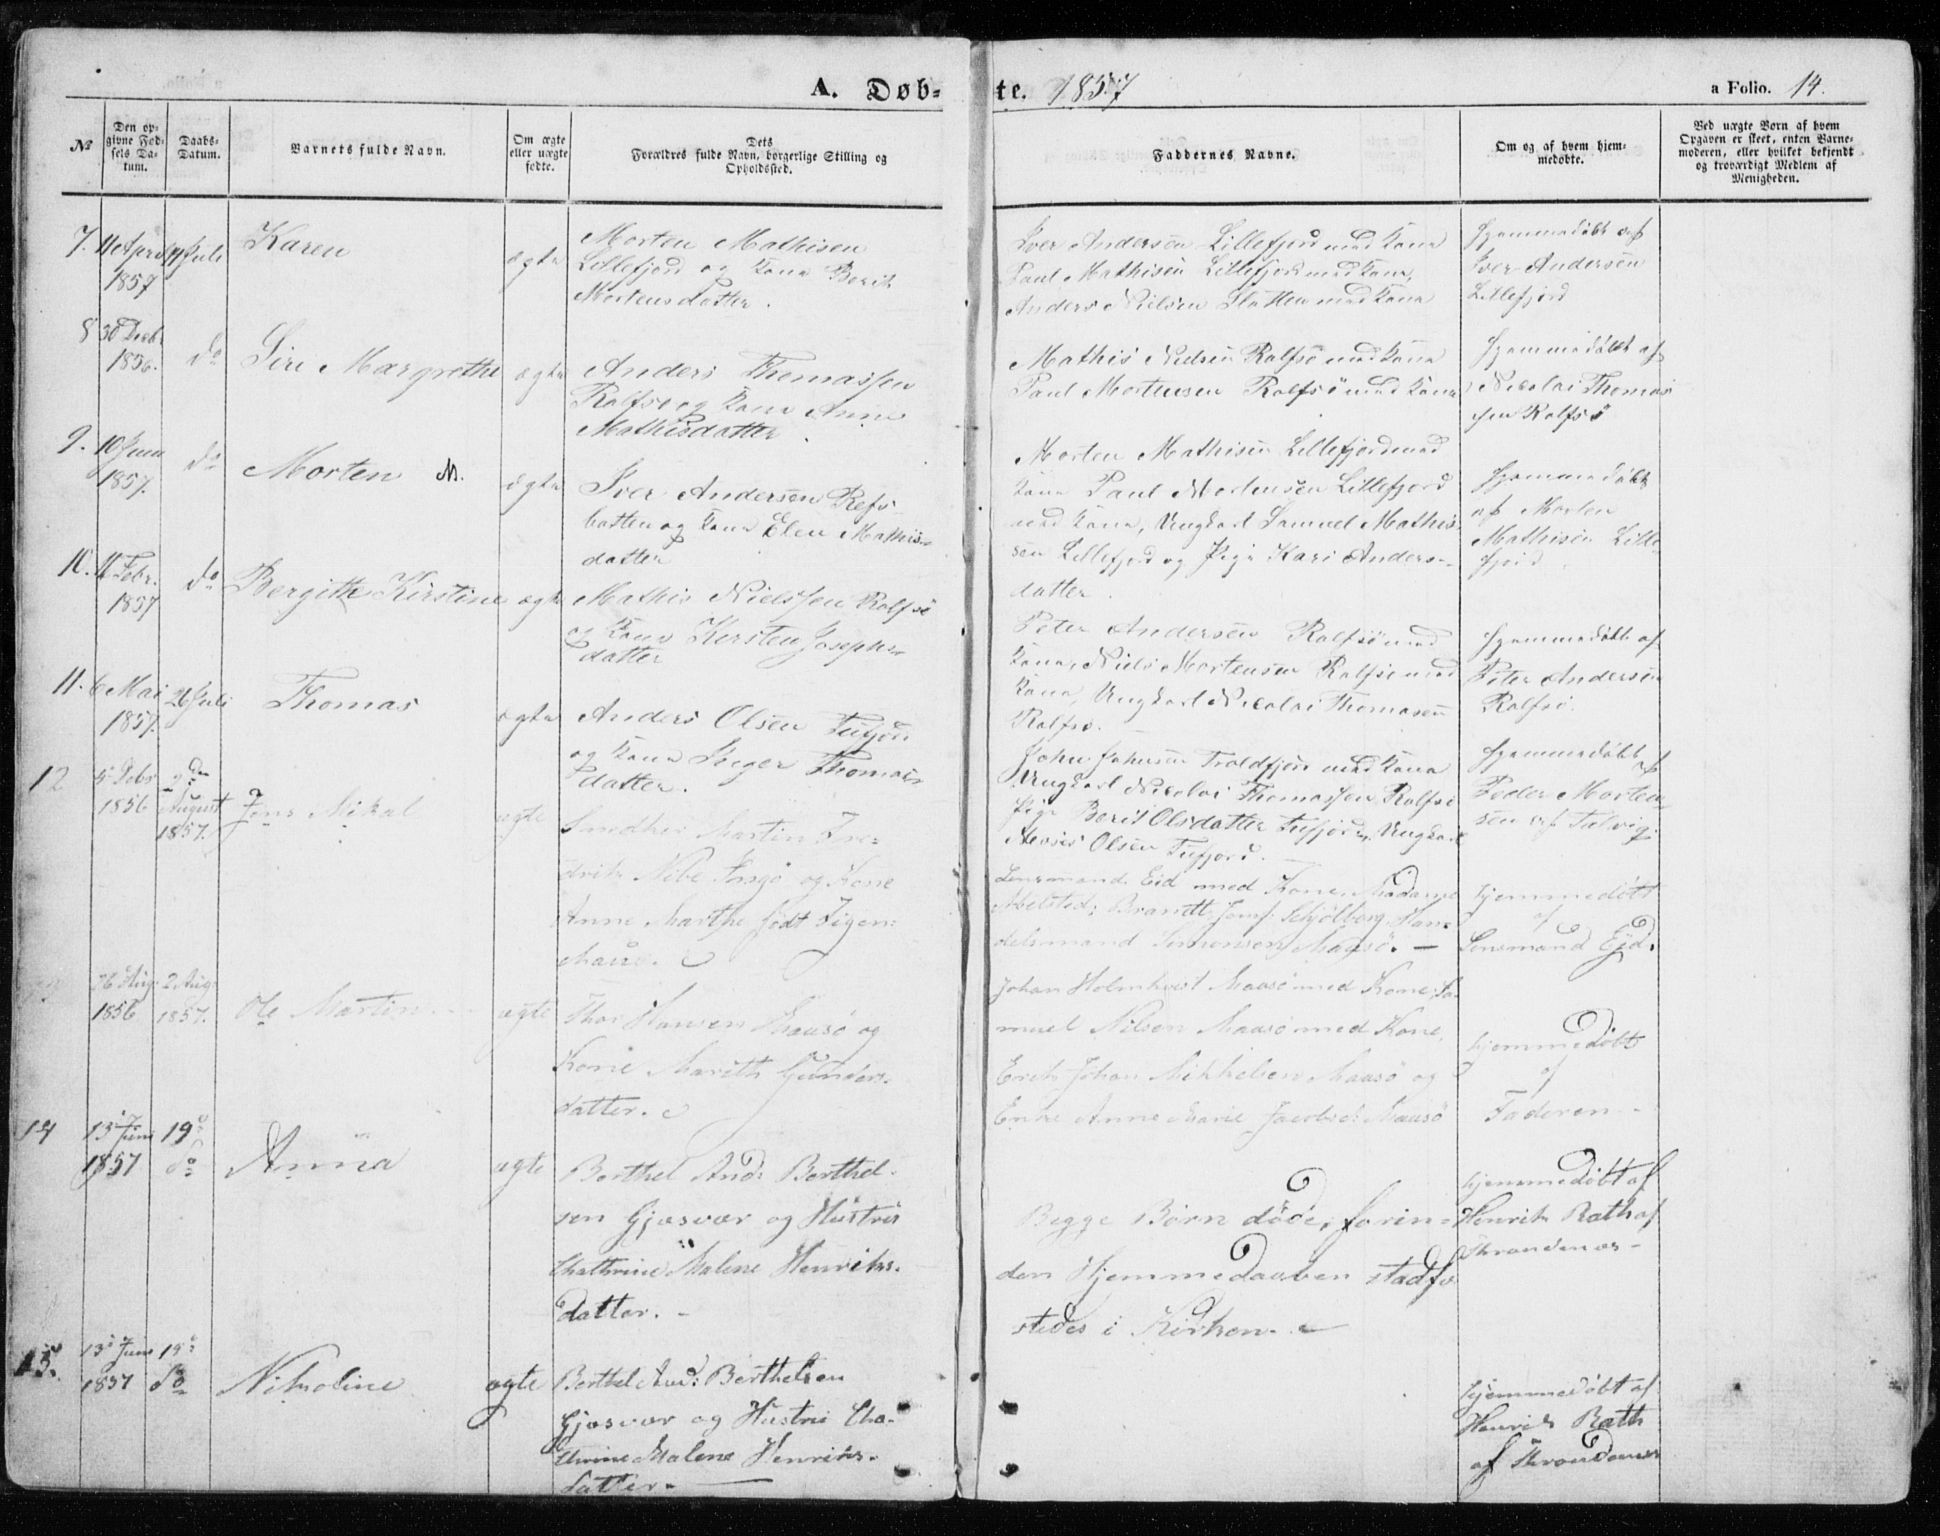 A. Døb-
te. 1857
a Folio. 14.
№
Den op-
givne Fød-
sels Da-
tum.
Daabs-
Datum.
Barnets fulde Navn.
Om ægte
eller uægte
fødte.
Dets
Forældres fulde Navn, borgerlige Stilling og
Opholdssted.
Faddernes Navne.
Om og af hvem hjem-
medøbte.
Ved uægte Børn af hvem
Opgaven er skeet, enten Barne-
moderen, eller hvilket bekjendt
og troværdigt Medlem af
Menigheden.
7.
1857
Juli
Karen
ægte
Morten Mathisen
Lillefjord og Kone Berit
Mortensdatter.
Iver Andersen Lillefjord med Kone
Paul Mathisen Lillefjord med Kone
Anders Nielsen Slotten med Kone
Hjemmedøbt af
Iver Andersen
Lillefjord
8
30 Decb.
1856.
do
Siri Margrethe
ægte
Anders Thomassen
Rolfsø og Kone Anne
Mathisdatter.
Mathis Nielsen Rolfsø med Kone
Paul Mortensen Rolfsø med Kone
Hjemmedøbt af
Nicolai Thomas
sen Rolfsø
9.
10 Juni
1857.
do
Morten M.
ægte
Iver Andersen Refs-
botten og Kone Elen Mathis-
datter
Morten Mathisen Lillefjord med
Kone Paul Mortensen Lillefjord
med Kone, Ungkarl Samuel Mathis-
sen Lillefjord og Pige Kari Anders-
datter.
Hjemmedøbt
af Morten
Mathisen Lille-
fjord
10.
11 Febr.
1857
do
Bergitte Kirstine
ægte
Mathis Nielssen Rolfsø
og Kone Kersten Josephs-
datter
Peter Andersen Rolfsø med
Kone, Niels Mortensen Rolfsø med
Kone, Ungkarl Nicolai Thomasen
Rolfsø.
Hjemmedøbt af
Peter Andersen
Rolfsø.
11.
6 Mai
1857.
26 Juli
Thomas
ægte
Anders Olsen Tufjord
og Kone Inger Thomas-
datter.
John Johnsen Troldfjord med Kone
Ungkarl Nicolai Thomassen Rolfsø
Pige Berit Olsdatter Tufjord, Ungkarl
Olsen Tufjord.
Hjemmedøbt
af
Peder Morten
sen af Talvig.
12
1856
2den
August
1857.
Jens Mikal
ægte
Martin Fre-
drik Nibe Ingø og Kone
Anne Marthe født
Lensmand Eid med Kone, Madame
Brandt, Jomf. Schjölberg, Han-
delsmand Simonsen Maasø. —
hjemmedøbt
af
Lensmand Ejd.
26 Aug.
1856
2 Aug.
1857.
Ole Martin
ægte
Thor Hansen Maasø og
Kone Marith Gunders-
datter.
Johan Holmkvist Maasø med Kone, Sa-
muel Nilsen Maasø med Kone,
Erik Johan Mikkelsen Maasø og
Enke Anne Marie Jacobsd: Maasø
hjemmedøbt
af
Faderen
14
13 Juni
1857
19
do
Anna
ægte
Berthel And: Berthel-
sen Gjæsvær og Hustru
Chathrine Malene Henriks-
datter. -
Begge Børn døde, forin-
den Hjemmedaaben stadfæ-
stedes i Kirken. —
hjemmedøbt af
Henrik Rath af
15.
13 Juni
1857
19
do
Nikoline
ægte
Berthel And: Berthelsen
Gjæsvær og Hustru Cha-
thrine Malene Henriks-
datter. —
hjemmedøbt af
Henrik Rath
af